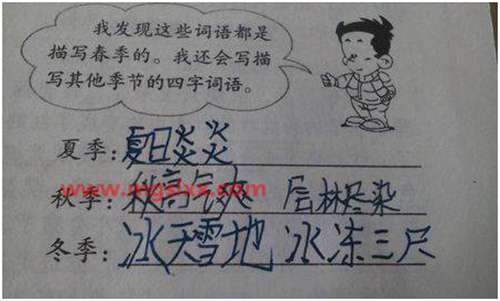 我发现这些词语都是
描写春季的。我还会写描
写其他季节的四字词语。
夏季:夏日炎炎
秋季:秋高气爽 层林尽染
www.mgslxx.com
冬季:冰天雪地 冰冻三尺